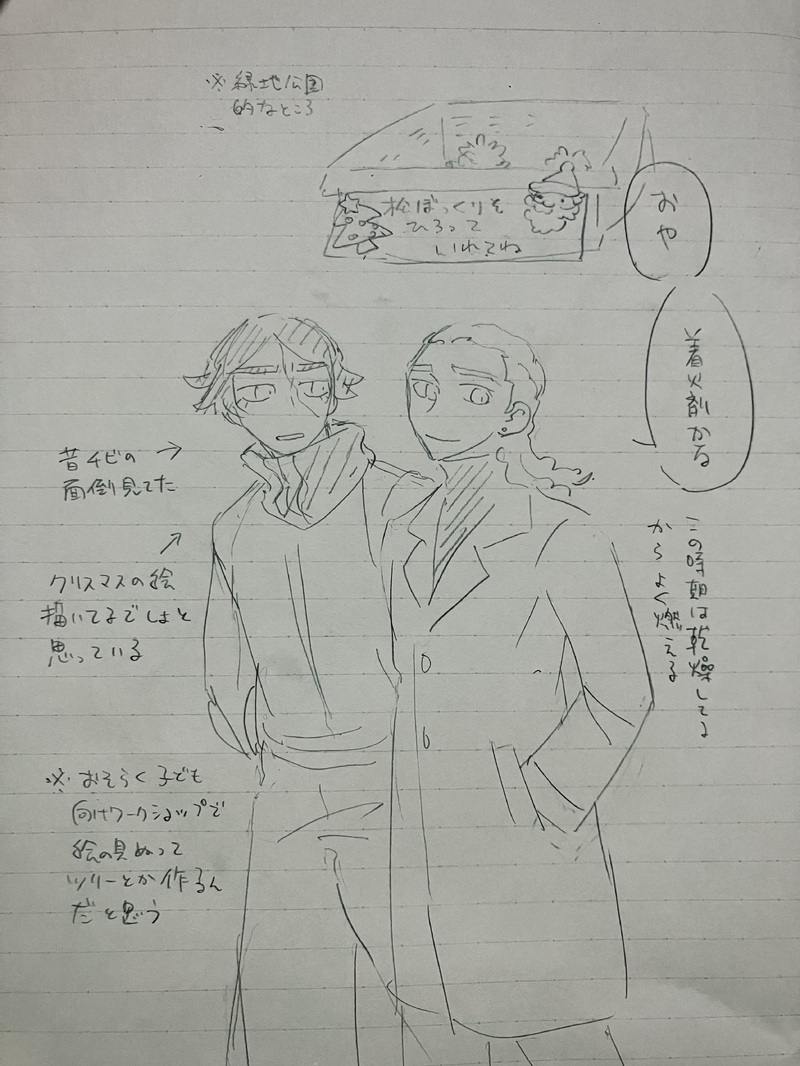 ※緑地公園
的なところ
松ぼっくりを
ひろって
いれてね
おや
着火剤かな
この時期は乾燥してる
からよく燃える
昔チビの
面倒見てた
クリスマスの絵
描いてるでしょと
思っている
※おそらく子ども
向けワークショップで
絵の具ぬって
ツリーとか作るん
だと思う